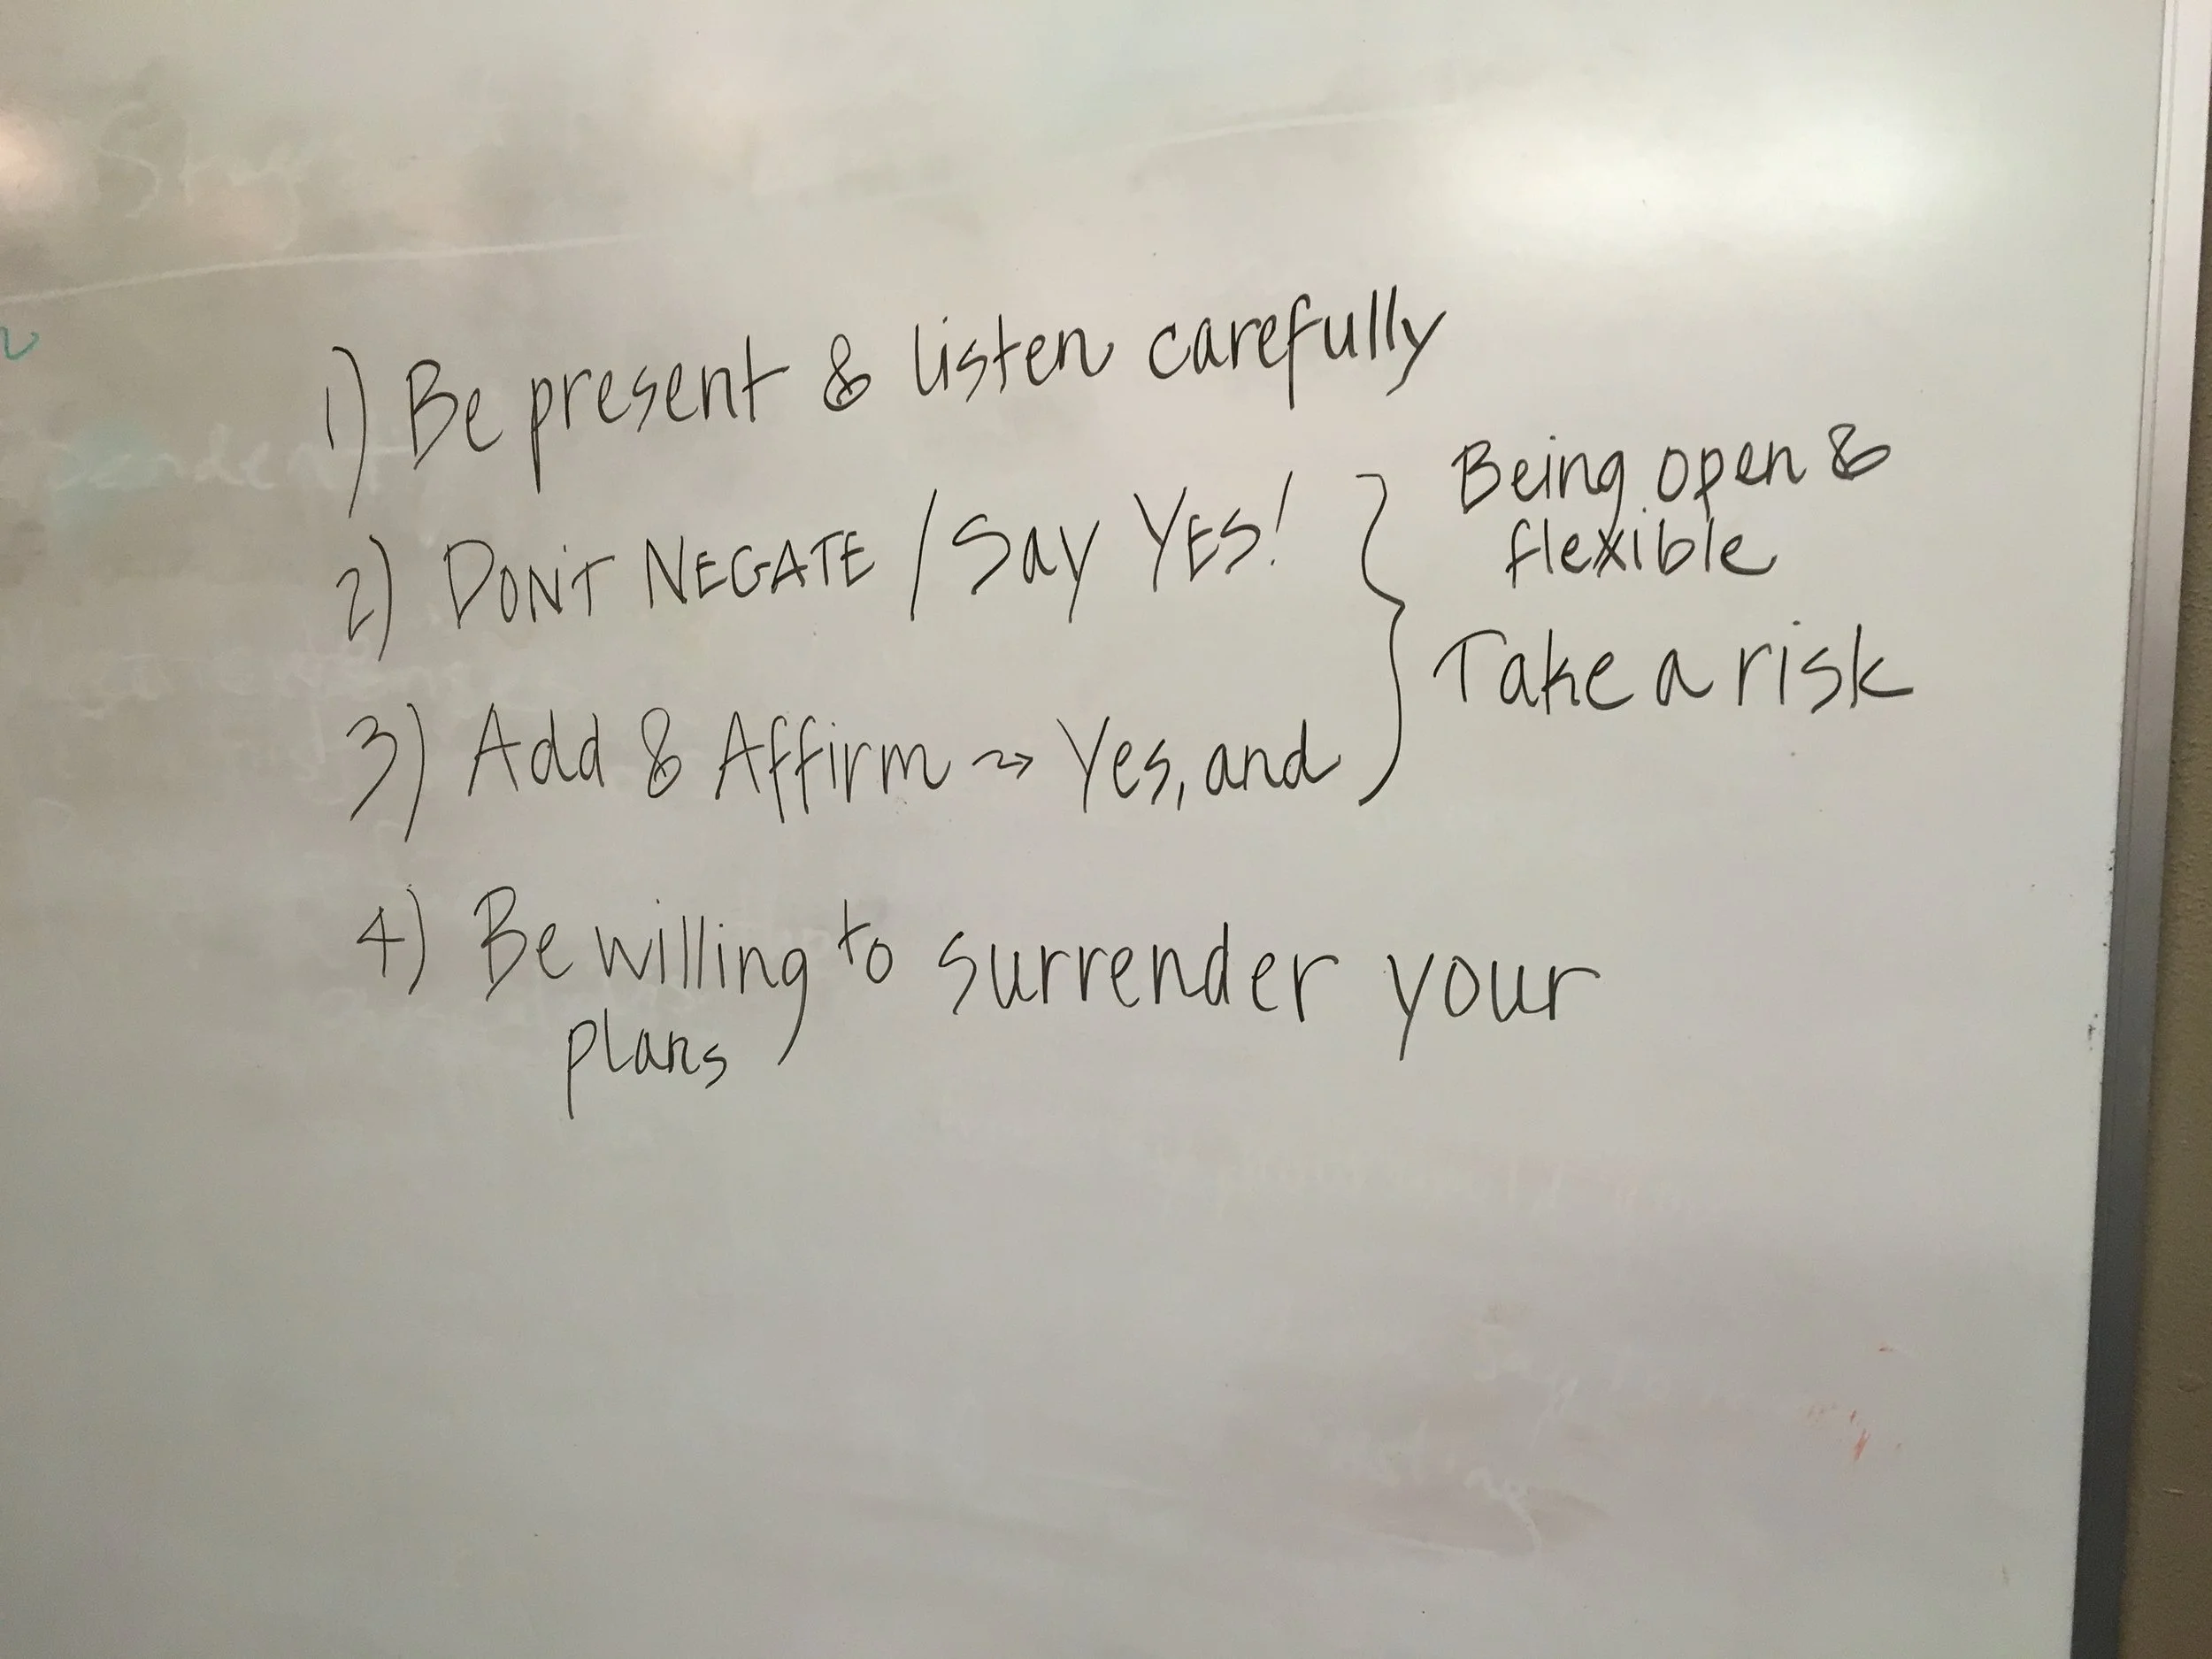 1) Be present & listen carefully
2) DON'T NEGATE / Say YES!
3) Add & Affirm → Yes, and
Being open &
flexible
Take a risk
4) Be willing to surrender your
plans